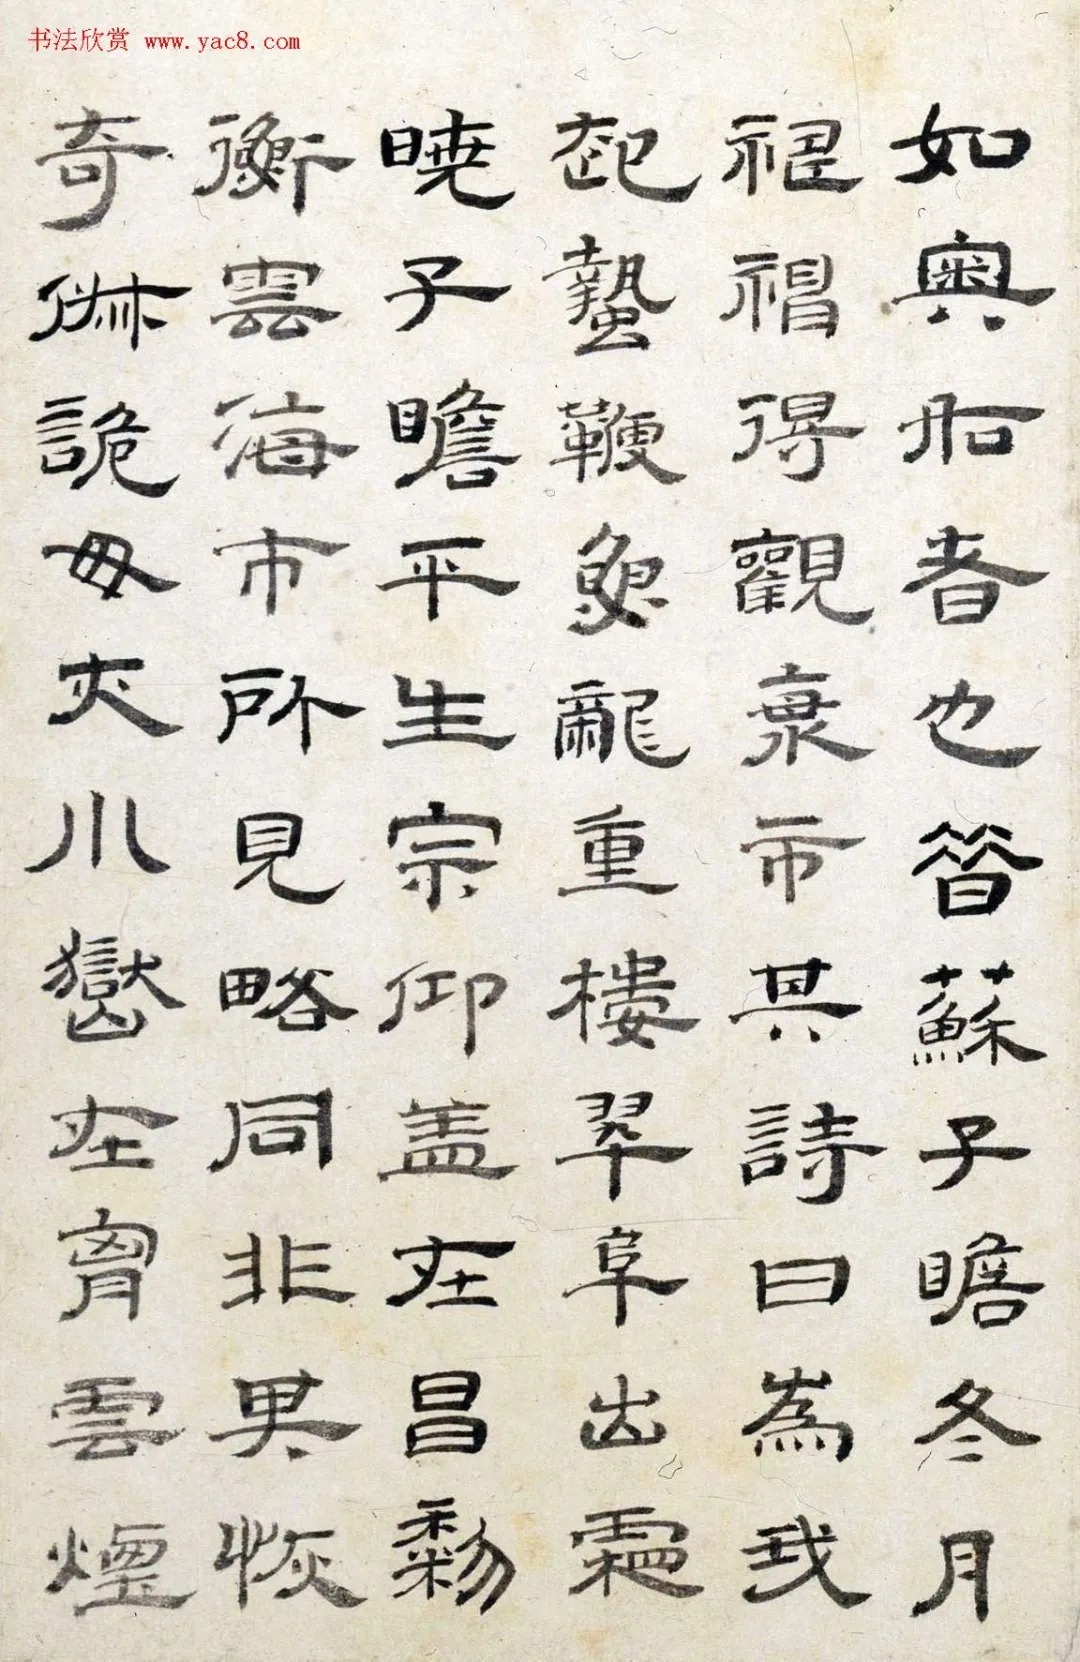 书法欣赏 www.yac8.com
如奥所者也昝蘇子瞻冬月
祖禓得觀衰市其詩曰為我
起蟄鞭魚龍重樓翠阜出霜
曉子瞻平生宗仰盖在昌黎
衡雲海市所見略同非異恢
奇俶詭毋夾小嶽在胷雲煙